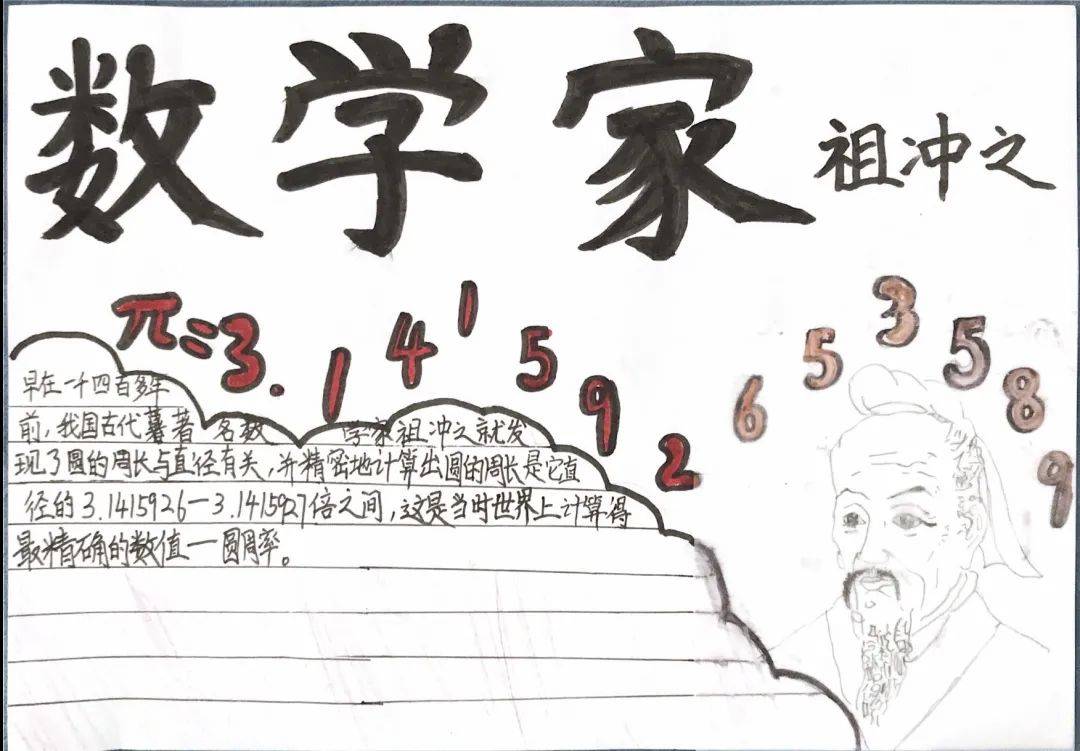 数学家 祖冲之
π=3.141592653589
早在一千四百多年
前,我国古代著名数学家祖冲之就发
现了圆的周长与直径有关,并精密地计算出圆的周长是它直
径的3.1415926—3.1415927倍之间,这是当时世界上计算得
最精确的数值—圆周率。